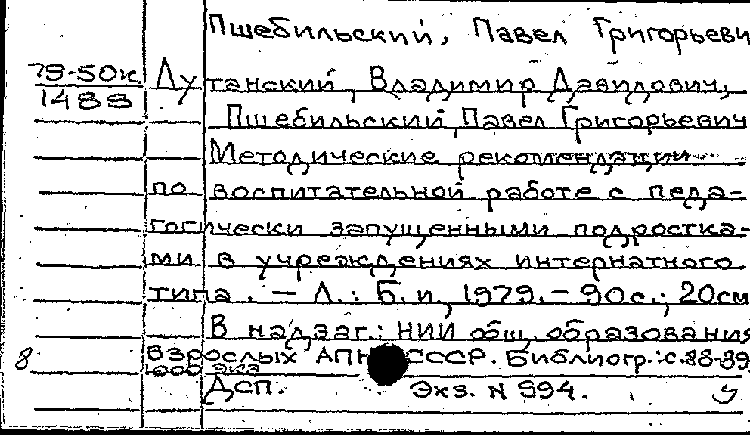 Пшебильский, Павел Григорьеви
79-50к
1488
Лутанский, Владимир Давидович,
Пшебильский, Павел Григорьевич
Методические рекомендации
по воспитательной работе с педа-
гогически запущенными подростка-
ми в учреждениях интернатного
типа. - Л.: Б. и, 1979. - 90с.; 20см
В надзаг.: НИИ общ, образования
8 взрослых АПН СССР. Библиогр.: с.88-89
экз
Дсп. Экз. N 994.